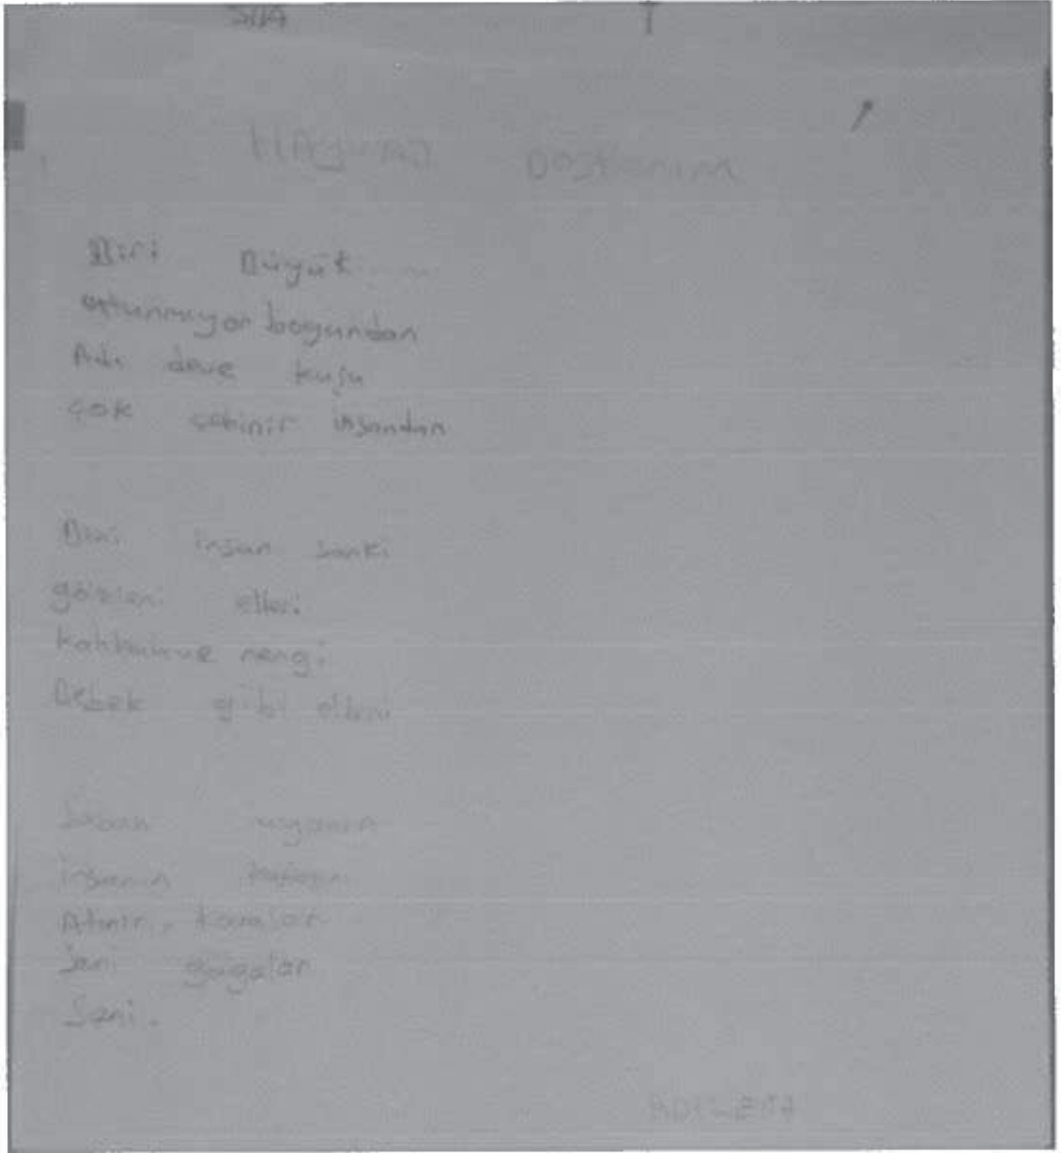 HAyvan Dostlarım
Biri Büyük
utunmuyor boyundan
Adı deve kuşu
çok sebinir insandan
Biri insan sanki
gözleri elleri
rengi
Bebek gibi elleri
Sabah uyanın
insanın
kovalar
seni gagalar
Seni.